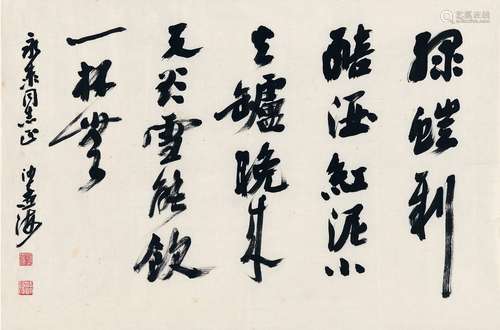 綠螘新
醅酒紅泥小
火鑪晚来
天欲雪能飲
一杯無
同志正 沙孟海